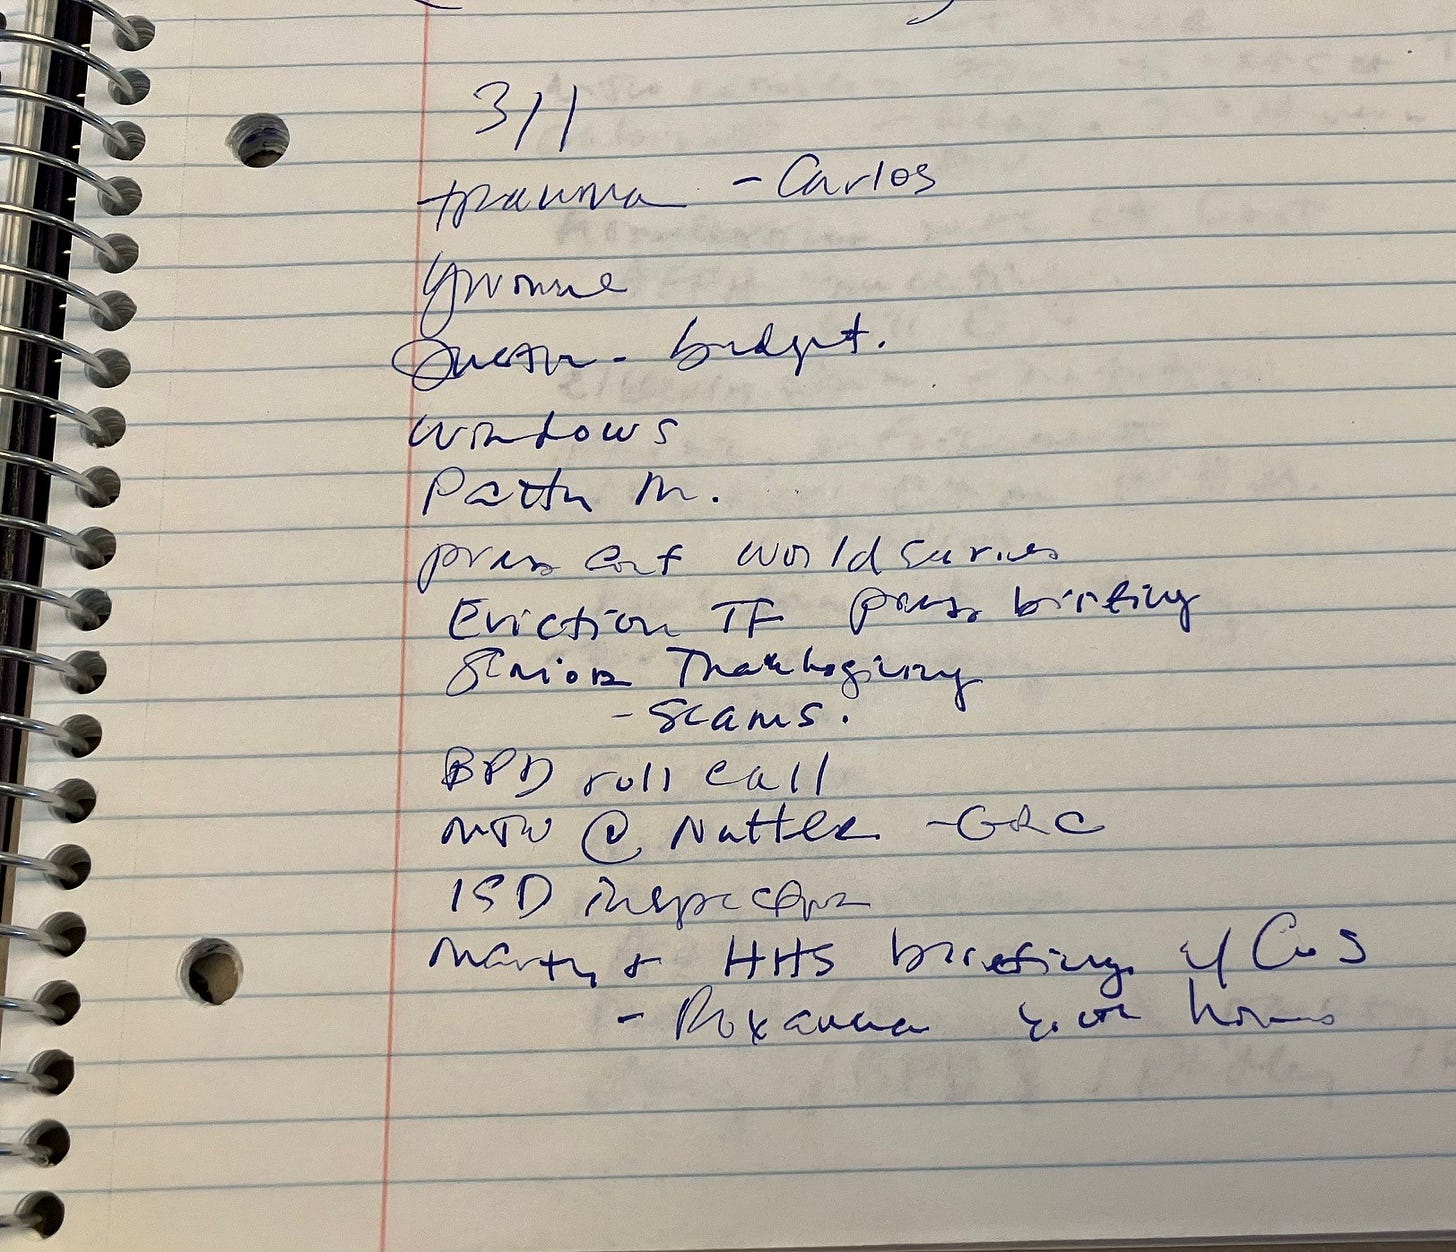 311
trauma - Carlos
Yvonne
budget.
windows
Patty M.
press conf world series
Eviction TF press briefing
Seniors Thanksgiving
- scams.
BPD roll call
MTW @ Nutter - GRC
ISD inspections
Marty & HHS briefing w/ CoS
- Roxanna